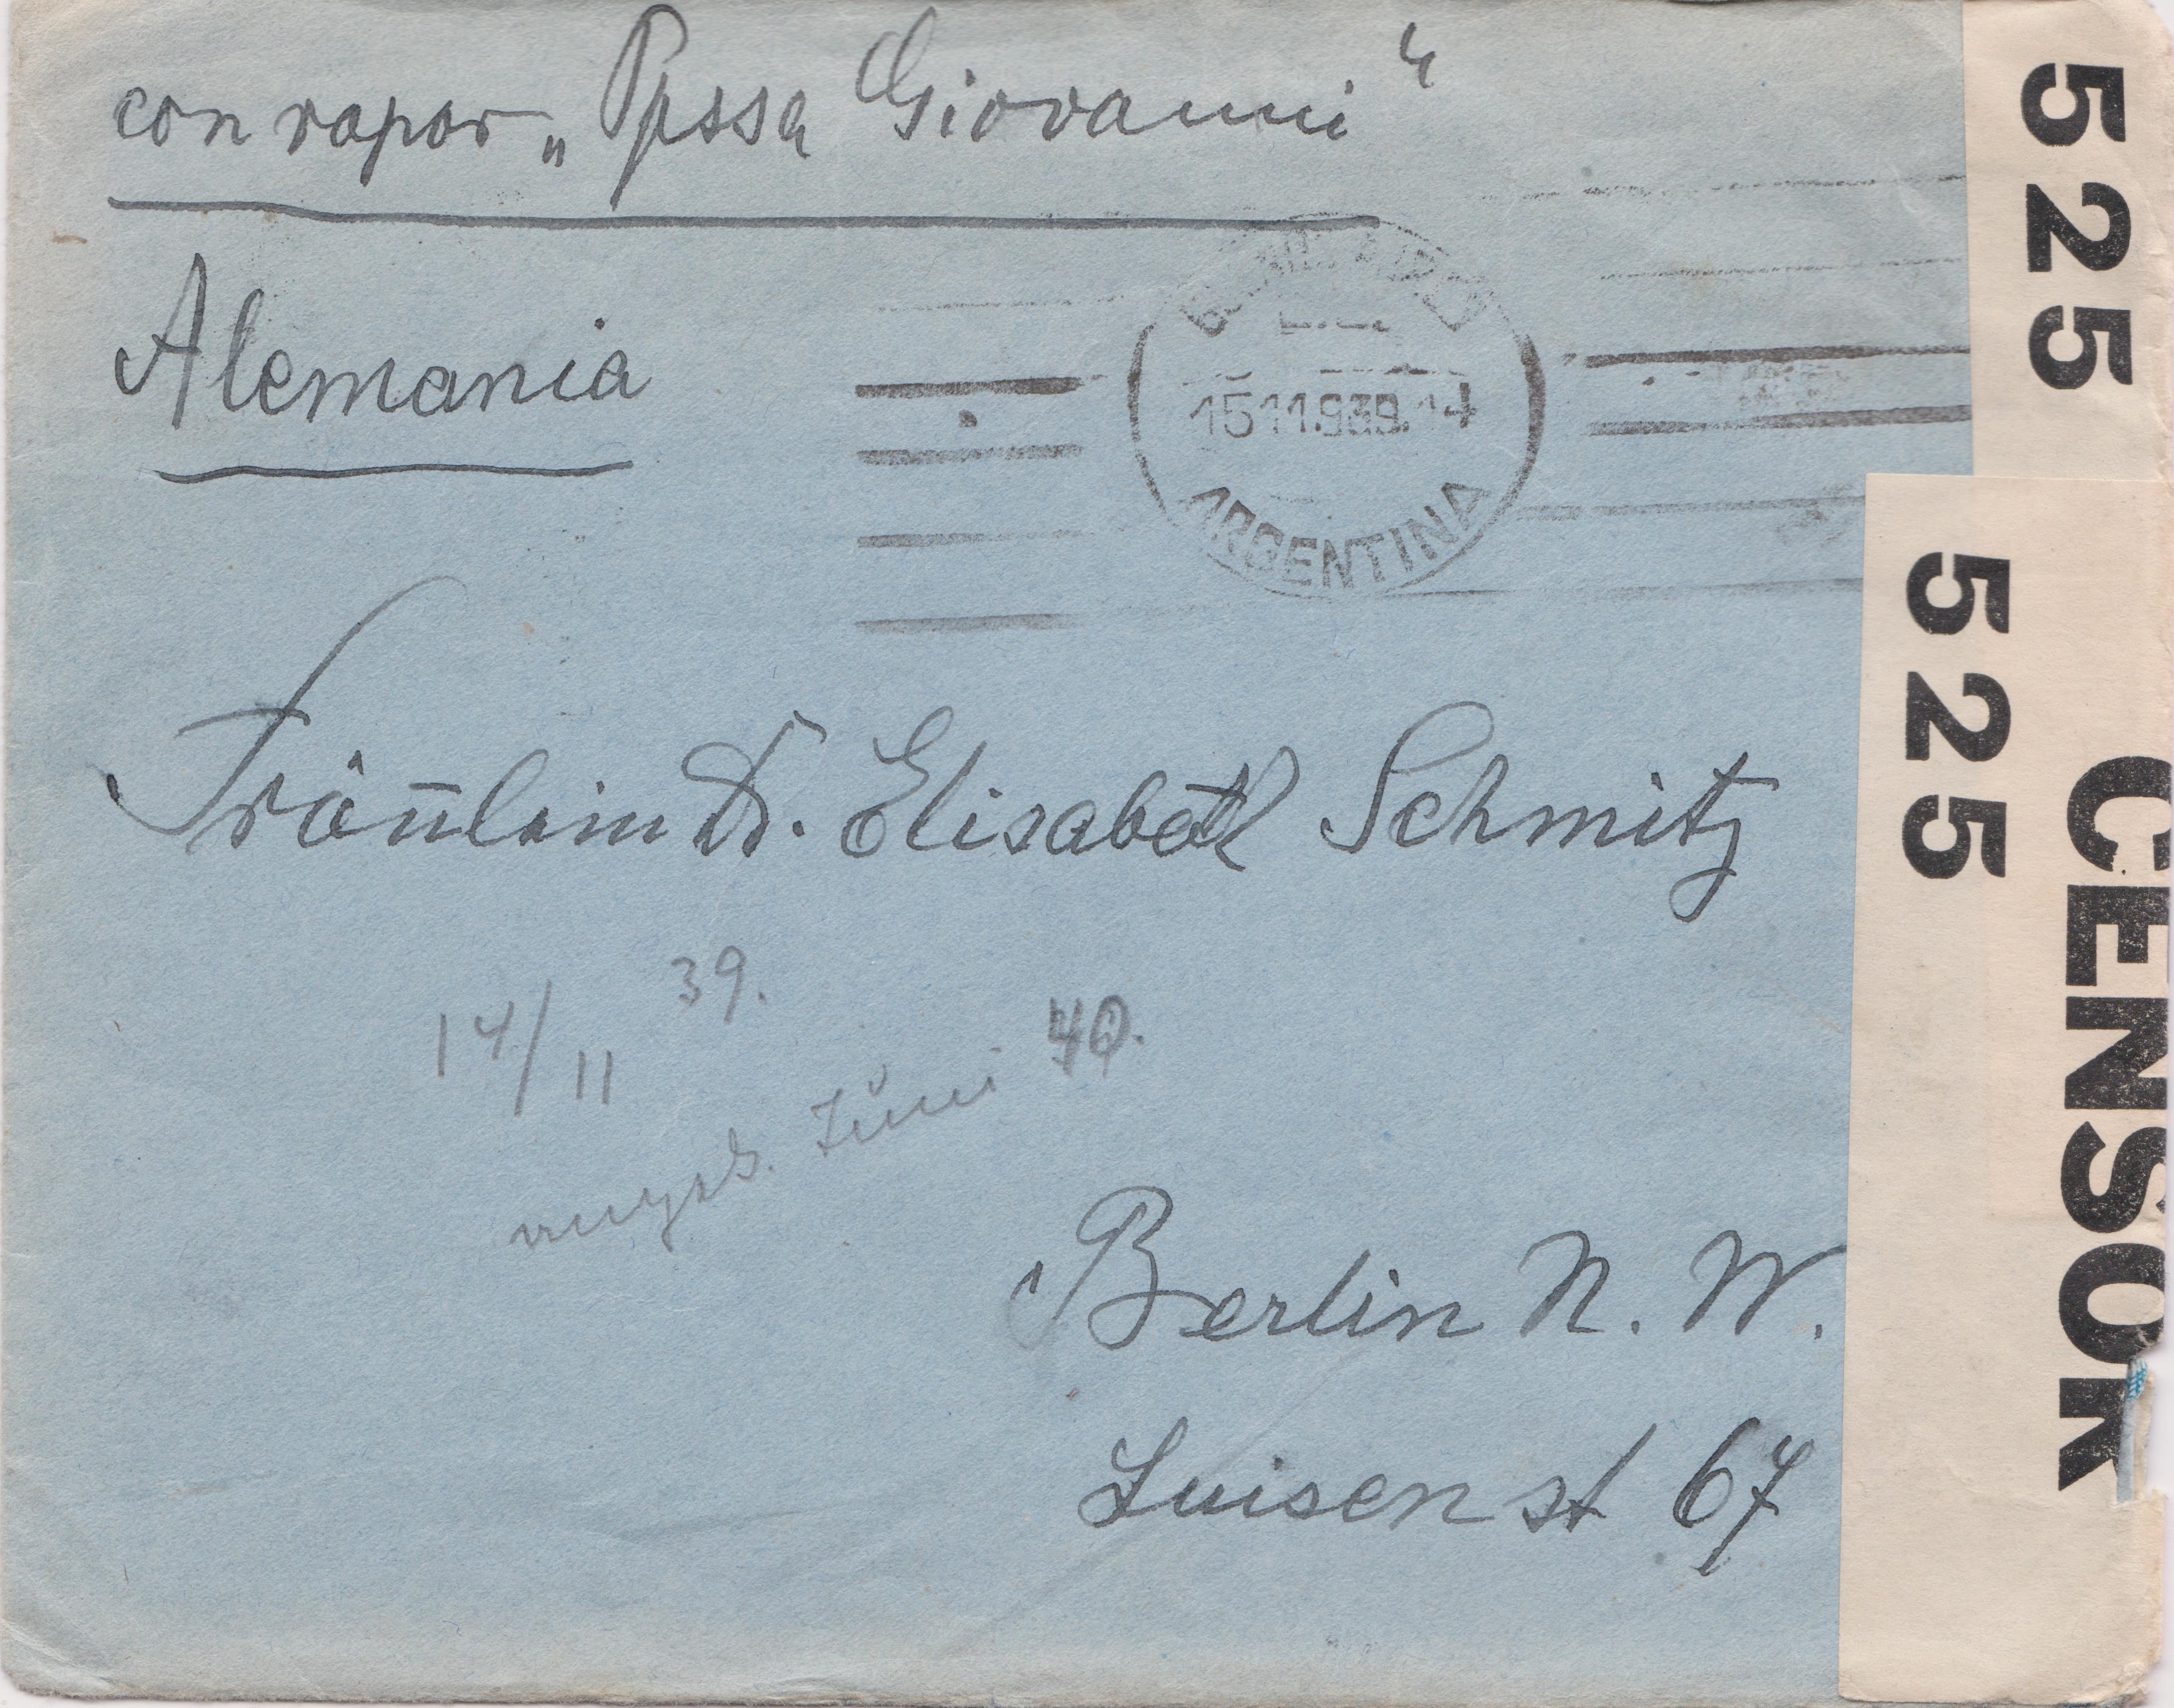 con vapor „Ppssa Giovanni“
Alemania
15 11.939. 14
ARGENTINA
Fräulein Dr. Elisabeth Schmitz
14/11 39.
Juni 40.
Berlin N. W.
Luisenst 67
525
525
CENSOR